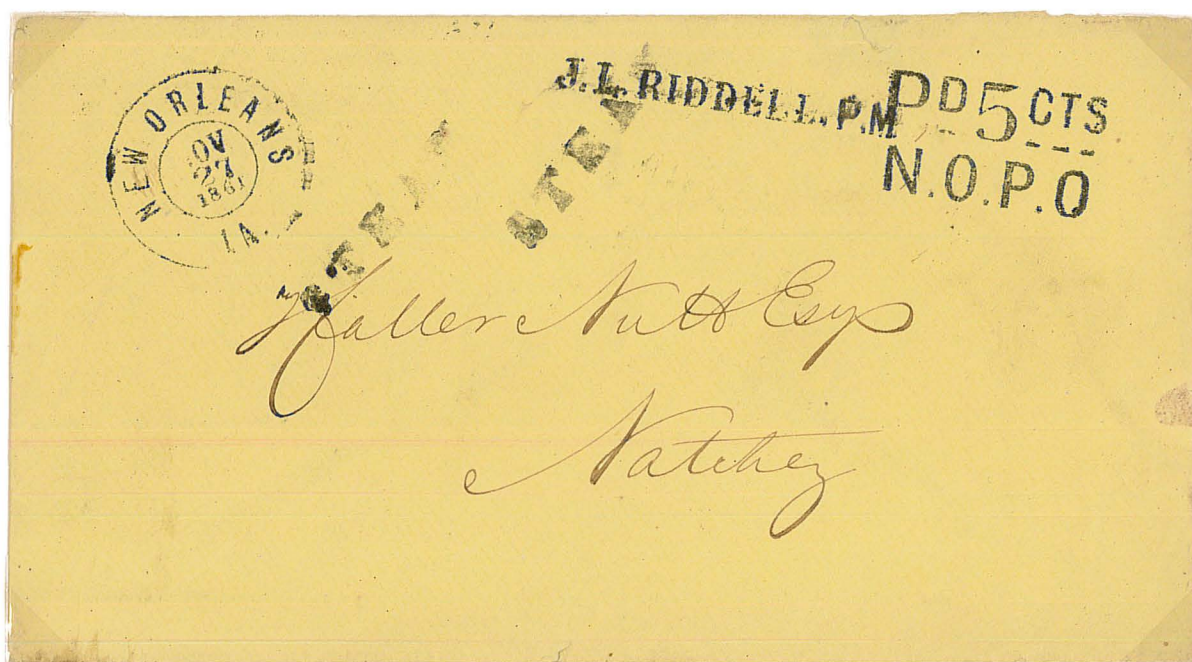 NEW ORLEANS
OV
27
1861
LA.
J.L. RIDDELL. P.M
PD 5 CTS
N.O.P.O
STEA
STEA
Haller Nutt Esq
Natchez